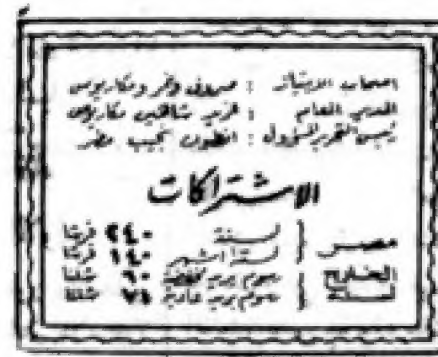 اصحاب الامتياز : صروف ونمر ومكاريوس
المدير العام : فريد شاهين مكاريوس
رئيس التحرير المسؤول : انطون نجيب مطر
الاشتراكات
مصر { لسنة ٢٤٠ قرشا
لستة اشهر ١٤٠ قرشا
الخارج لسنة { رسوم بريد مخفضة ٦٠ شلنا
رسوم بريد عادية ٧٤ شلنا